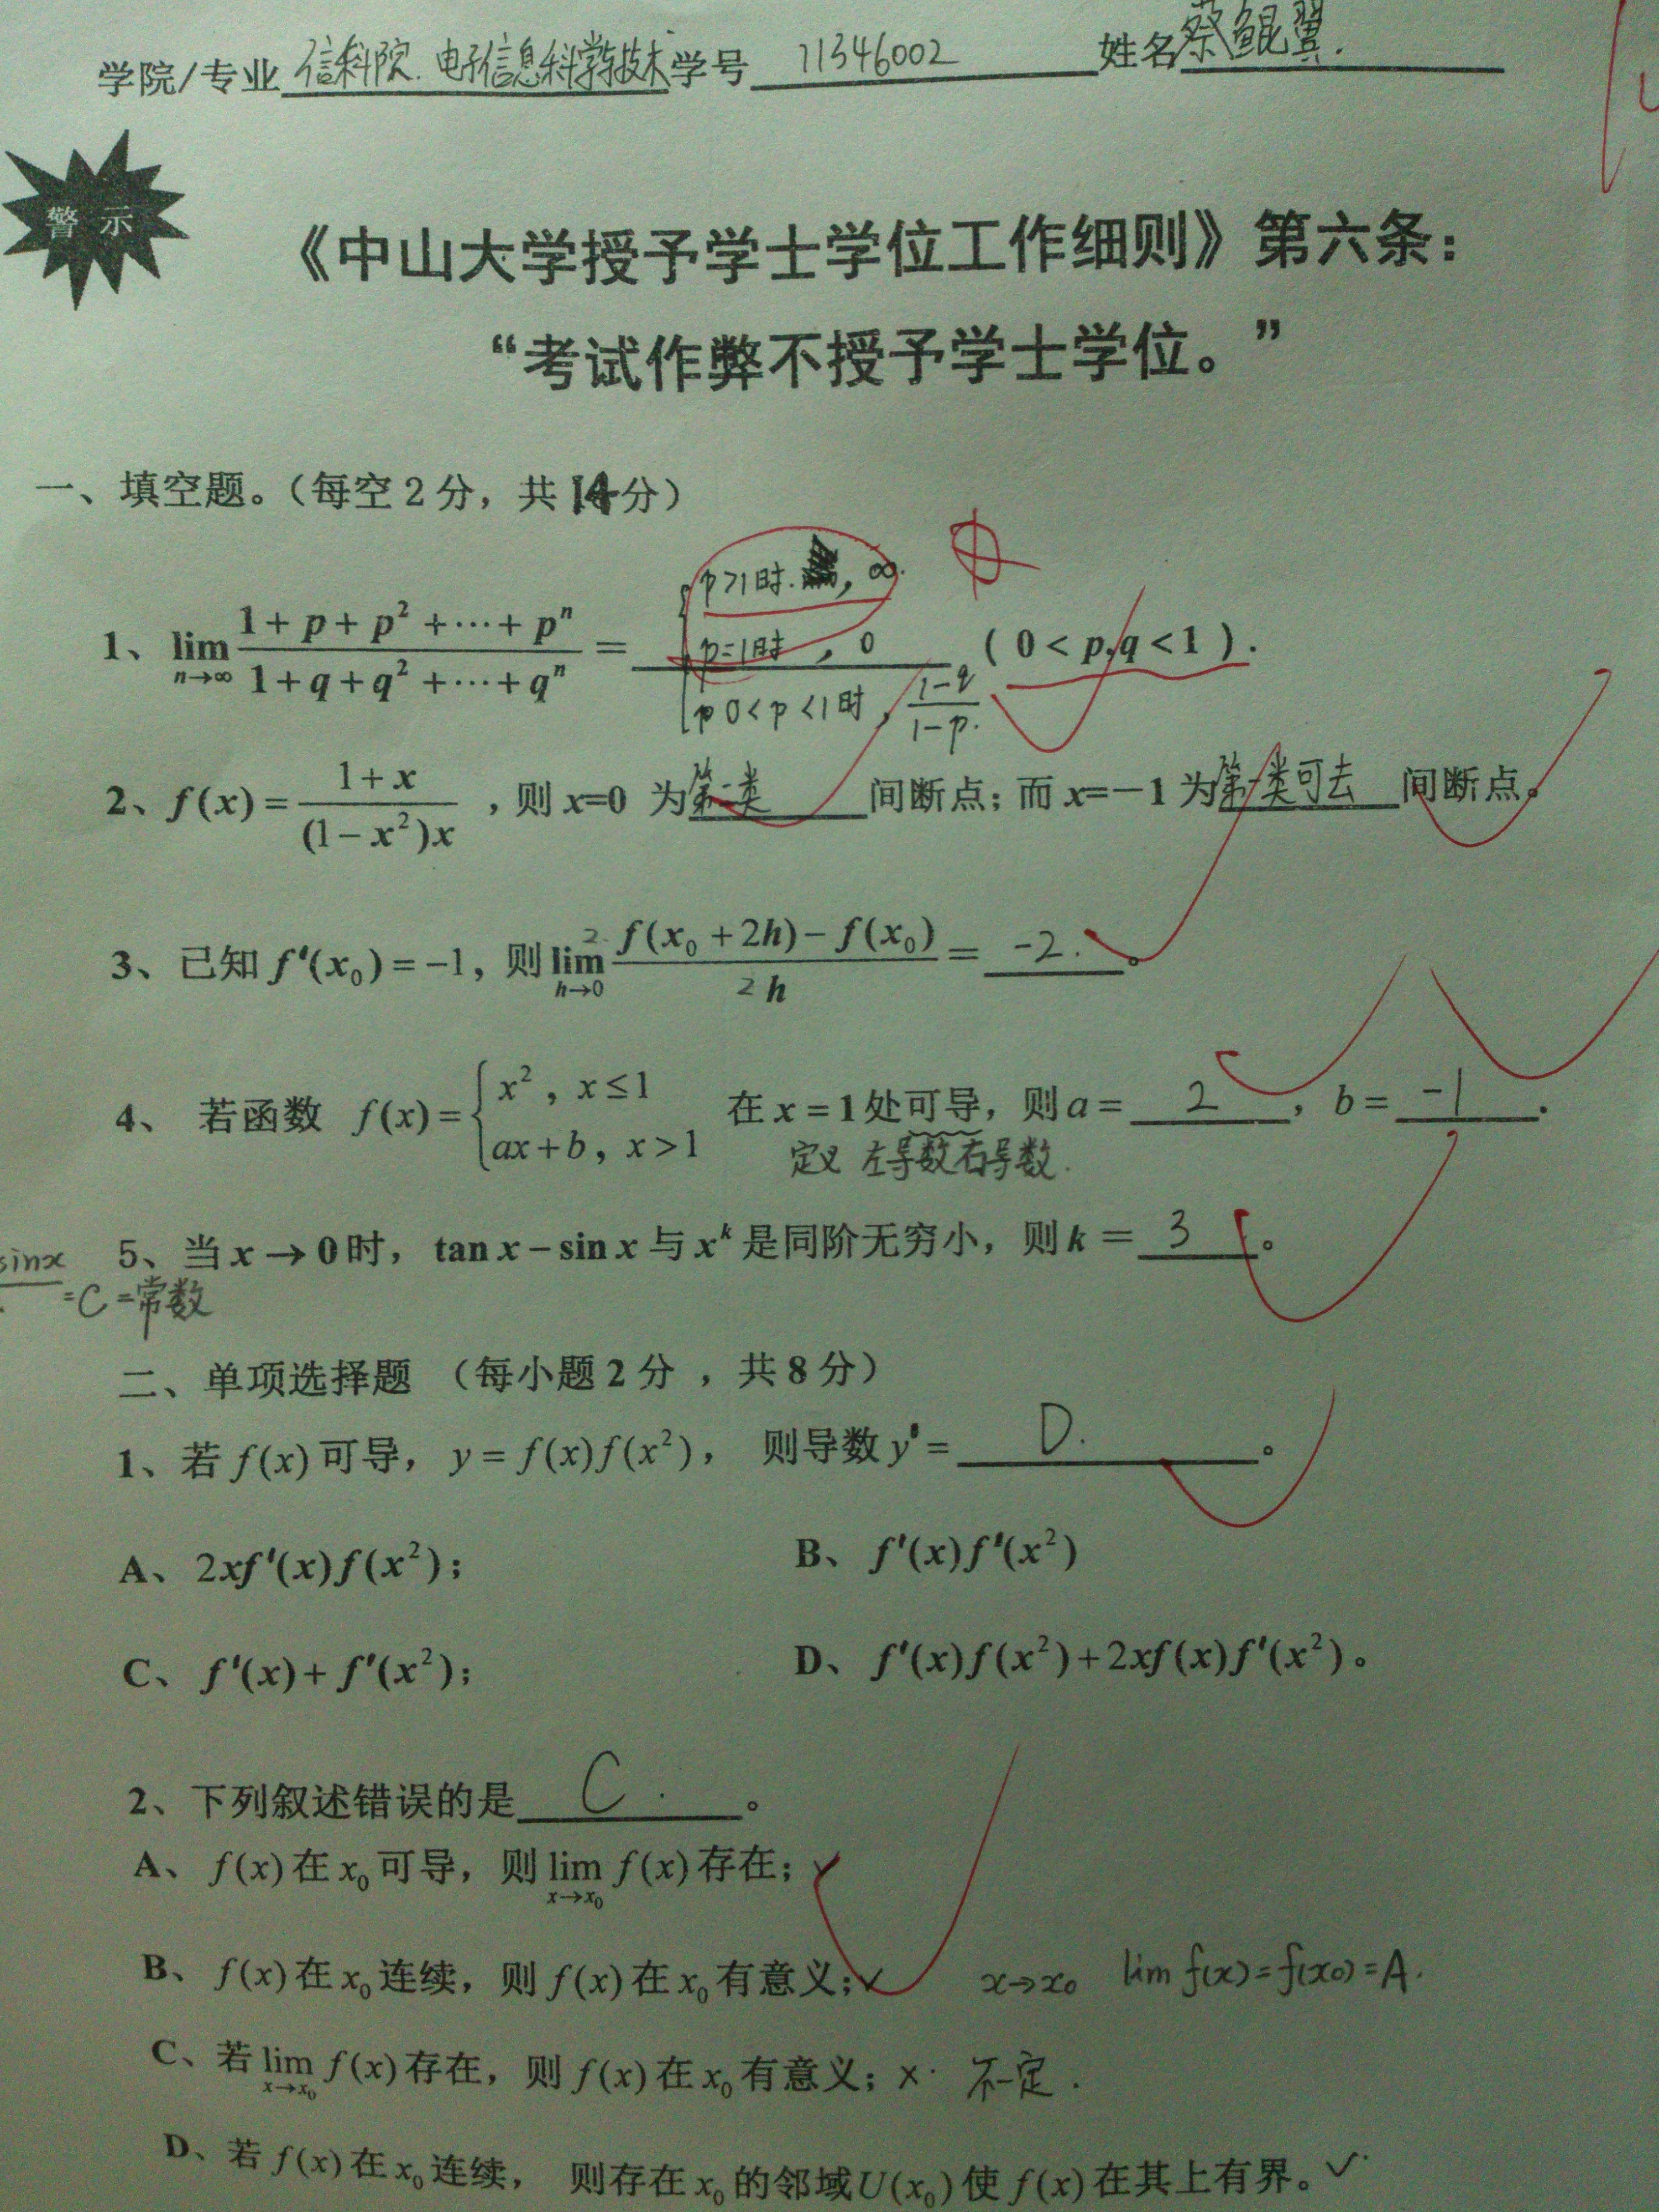 学院/专业 信科院.电子信息科学与技术 学号 11346002 姓名 蔡鲲翼.
警 示
《中山大学授予学士学位工作细则》第六条：
“考试作弊不授予学士学位。”
一、填空题。（每空 2 分，共 14 分）
p>1时. , ∞.
1、lim n→∞ (1+p+p²+⋯+pⁿ)/(1+q+q²+⋯+qⁿ) = p=1时 , 0 ( 0<p,q<1 ).
p 0<p<1时, (1-q)/(1-p).
2、f(x)=(1+x)/((1-x²)x) ，则 x=0 为 第二类 间断点；而 x=-1 为 第一类可去 间断点。
3、已知 f'(x₀)=-1，则 2 lim h→0 (f(x₀+2h)-f(x₀))/(2h) = -2. 。
4、 若函数 f(x)={x² , x≤1
ax+b , x>1 在 x=1处可导，则 a= 2 ，b= -1 .
定义 左导数右导数.
5、当 x→0 时， tan x-sin x 与 xᵏ 是同阶无穷小，则 k = 3 。
sinx
=C=常数
二、单项选择题 （每小题 2 分 ，共 8 分）
1、若 f(x) 可导， y=f(x)f(x²)， 则导数 y'= D. 。
A、2xf'(x)f(x²)； B、f'(x)f'(x²)
C、f'(x)+f'(x²)； D、f'(x)f(x²)+2xf(x)f'(x²)。
2、下列叙述错误的是 C . 。
A、 f(x) 在 x₀ 可导，则 lim x→x₀ f(x) 存在；✓
B、 f(x) 在 x₀ 连续，则 f(x) 在 x₀ 有意义；✓ x→x₀ lim f(x)=f(x₀)=A.
C、若 lim x→x₀ f(x) 存在，则 f(x) 在 x₀ 有意义；×. 不一定.
D、若 f(x) 在 x₀ 连续， 则存在 x₀ 的邻域U(x₀) 使 f(x) 在其上有界。✓.